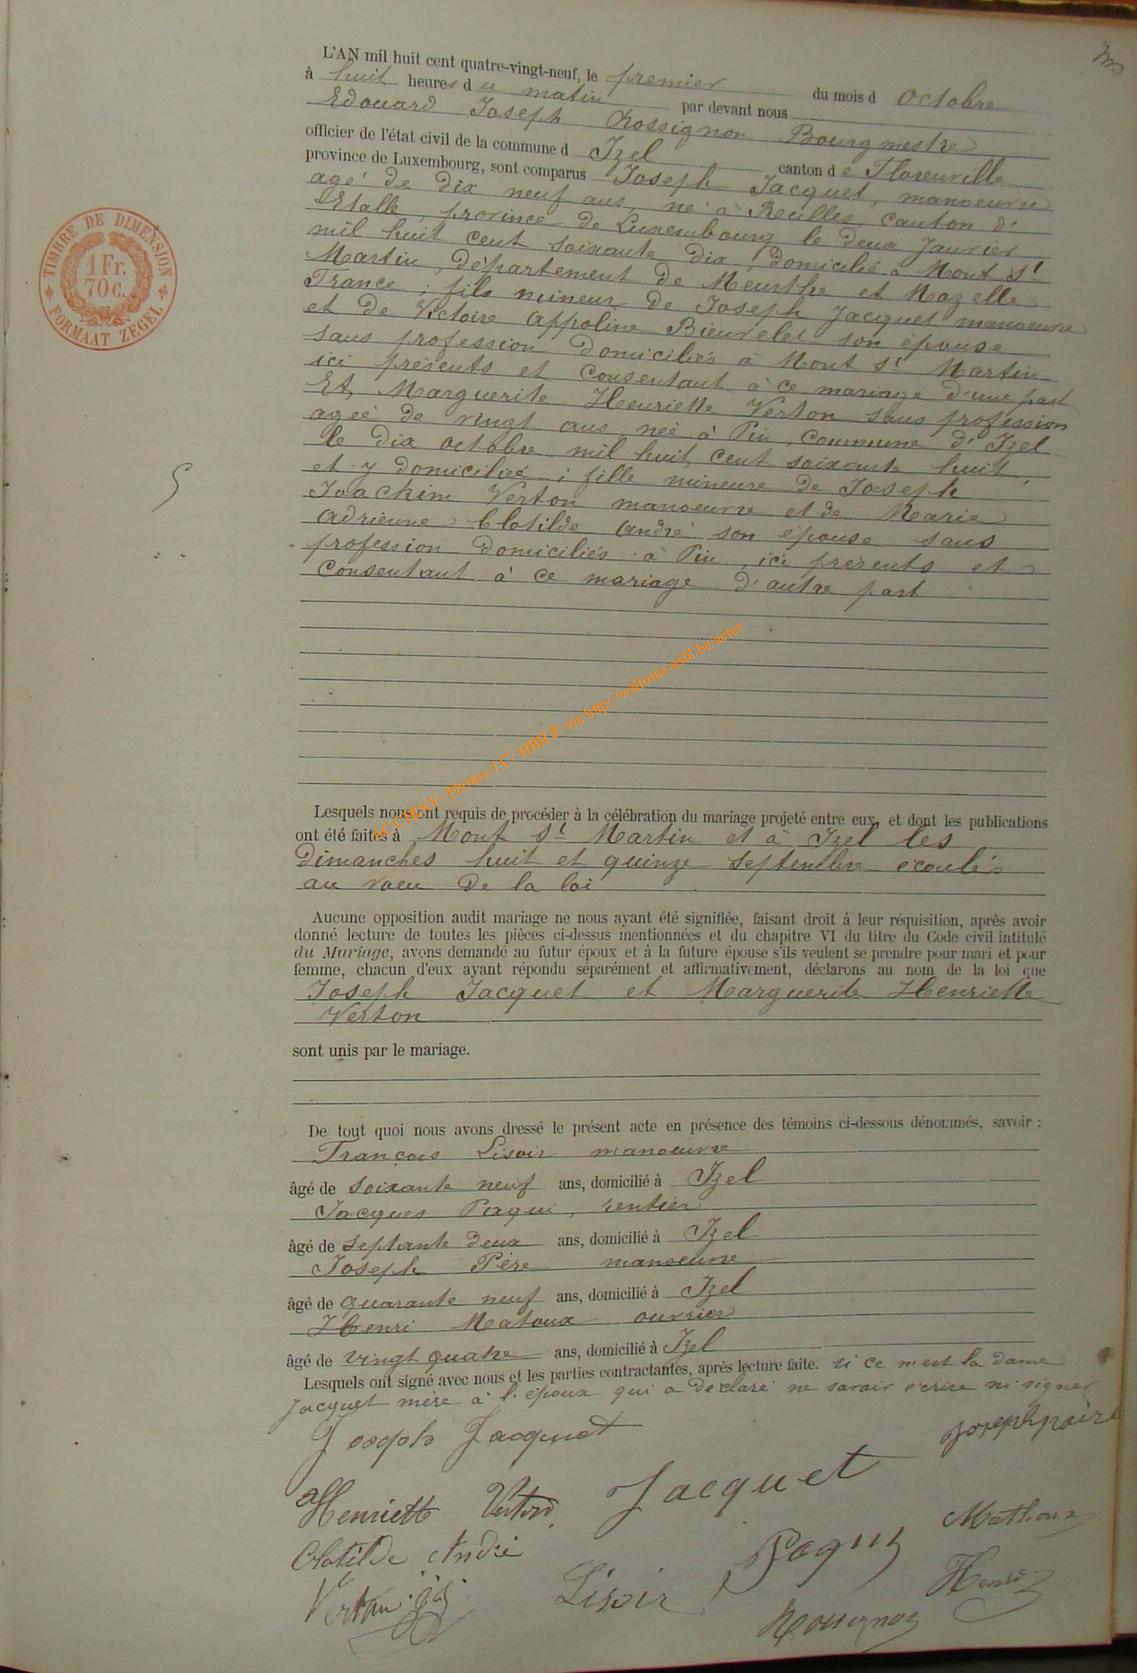 L'AN mil huit cent quatre-vingt-neuf, le premier du mois d Octobre
à huit heures du matin par devant nous
Edouard Joseph Rossignon Bourgmestre
officier de l'état civil de la commune d Izel canton de Florenville
province de Luxembourg, sont comparus Joseph Jacquet, manoeuvre
agé de dix neuf ans, né à Rulles canton d'
Etalle, province de Luxembourg le deux Janvier
mil huit cent soixante dix, domicilié à Mont St
Martin, département de Meurthe et Mozelle
France ; fils mineur de Joseph Jacquet manoeuvre
et de Victoire Appoline son épouse
sans profession domiciliés à Mont St Martin
ici présents et consentant à ce mariage d'une part
Et, Marguerite Henriette Verton sans profession
agée de vingt ans, née à Pin, commune d'Izel
le dix octobre mil huit cent soixante huit,
et y domiciliée ; fille mineure de Joseph
Joachim Verton manoeuvre et de Marie
Adrienne Clotilde André son épouse sans
profession domiciliés à Pin, ici présents et
consentant à ce mariage d'autre part
Lesquels nous ont requis de procéder à la célébration du mariage projeté entre eux, et dont les publications
ont été faites à Mont St Martin et à Izel les
Dimanches huit et quinze Septembre écoulés
au voeu de la loi
Aucune opposition audit mariage ne nous ayant été signifiée, faisant droit à leur réquisition, après avoir
donné lecture de toutes les pièces ci-dessus mentionnées et du chapitre VI du titre du Code civil intitulé
du Mariage, avons demandé au futur époux et à la future épouse s'ils veulent se prendre pour mari et pour
femme, chacun d'eux ayant répondu séparément et affirmativement, déclarons au nom de la loi que
Joseph Jacquet et Marguerite Henriette
Verton
sont unis par le mariage.
De tout quoi nous avons dressé le présent acte en présence des témoins ci-dessous dénommés, savoir :
François Lisoir manoeuvre
âgé de soixante neuf ans, domicilié à Izel
Jacques Paqui, rentier
âgé de septante deux ans, domicilié à Izel
Joseph Père manoeuvre
âgé de quarante neuf ans, domicilié à Izel
Henri Matoux ouvrier
âgé de vingt quatre ans, domicilié à Izel
Lesquels ont signé avec nous et les parties contractantes, après lecture faite. si ce n'est la dame
Jacquet mère à l'époux qui a declaré ne savoir écrire ni signer
Joseph Jacquet
Henriette Verton Jacquet
Clotilde André Mathoux
Lisoir Henri
Rossignon
TIMBRE DE DIMENSION
1 Fr.
70 c.
FORMAAT ZEGEL